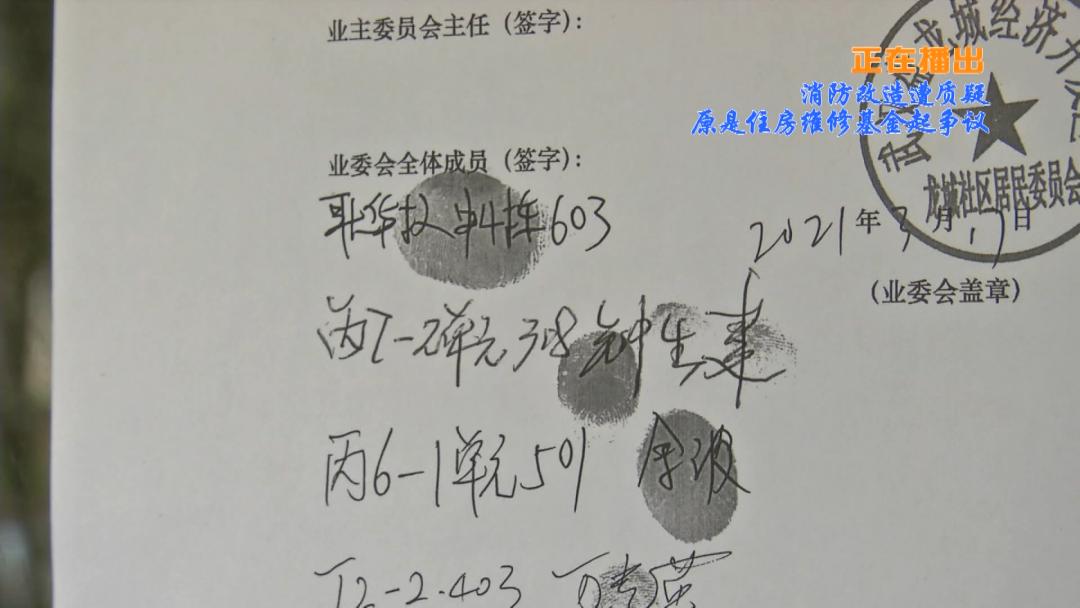 业主委员会主任（签字）：
正在播出
消防改造遭质疑
原是住房维修基金起争议
城经济开
龙城社区居民委员会
业委会全体成员（签字）：
603
2021年3月17日
（业委会盖章）
丙7-2单元308 钟生
丙6-1单元501 余波
丁2-2.403 万秀英